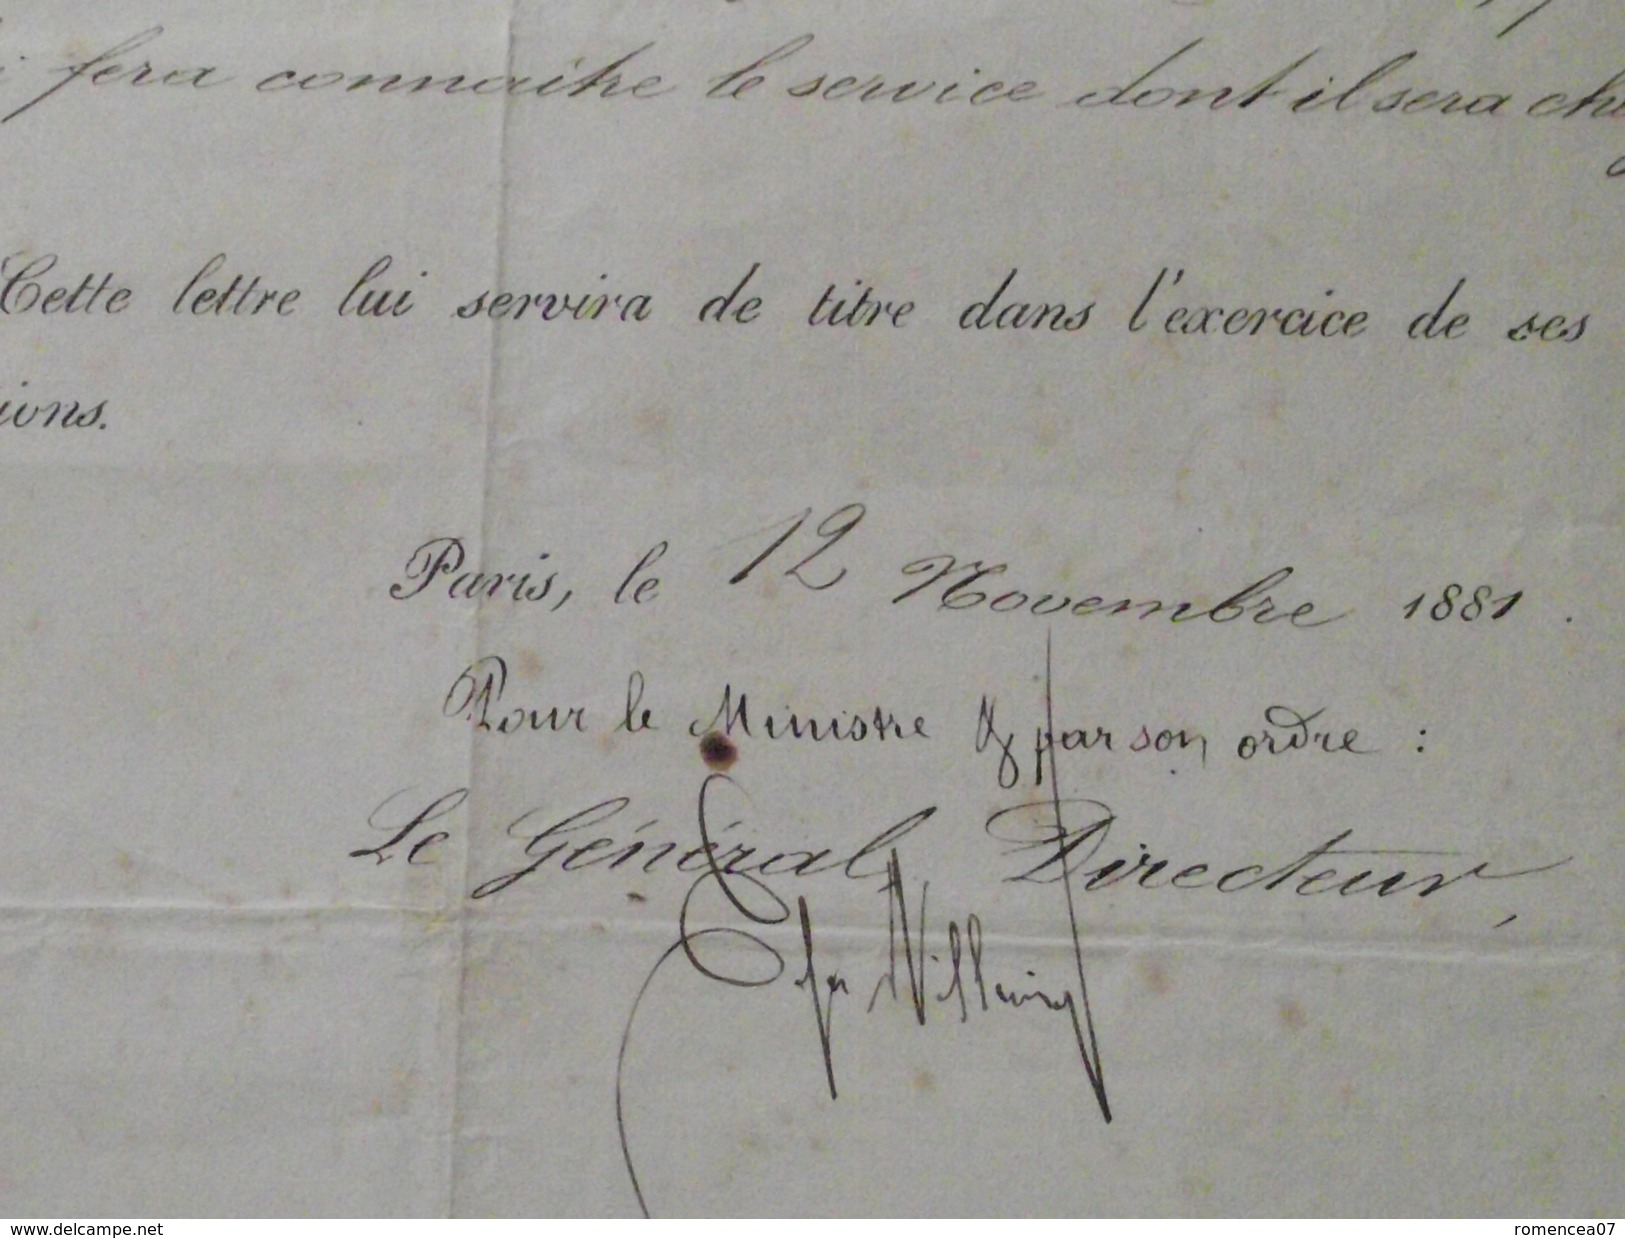 fera connaître le service dont il sera
Cette lettre lui servira de titre dans l'exercice de ses
ions.
Paris, le 12 Novembre 1881.
Pour le Ministre & par son ordre :
Le Général Directeur,
www.delcampe.net
romencea07